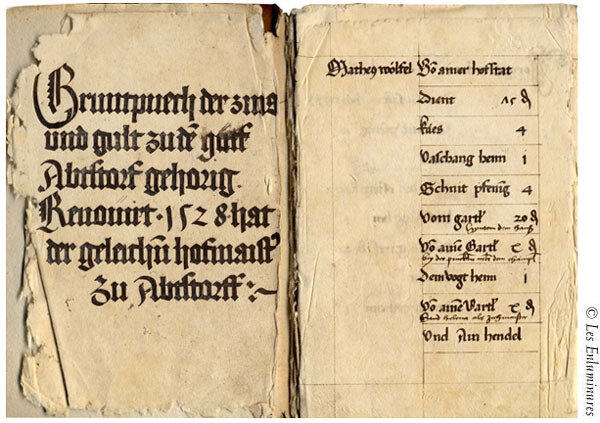 Gruntpuech der zins
und gult zu dē gutt
Abtstorf gehorig.
Renouirt · 1528 · hat
der geleichñ hofmaist
zu Abtstorff :~
Matheus wölfel Võ ainer hofstat
dient 15 ₰
käs 4
Vaschang henn 1
Schnit pfenig 4
Vom gartl 20 ₰
Võ ainē Gartl ₰
bey der
Dem vogt henn 1
Võ ainē Gartl ₰
Und Ain hendel
© Les Enluminures